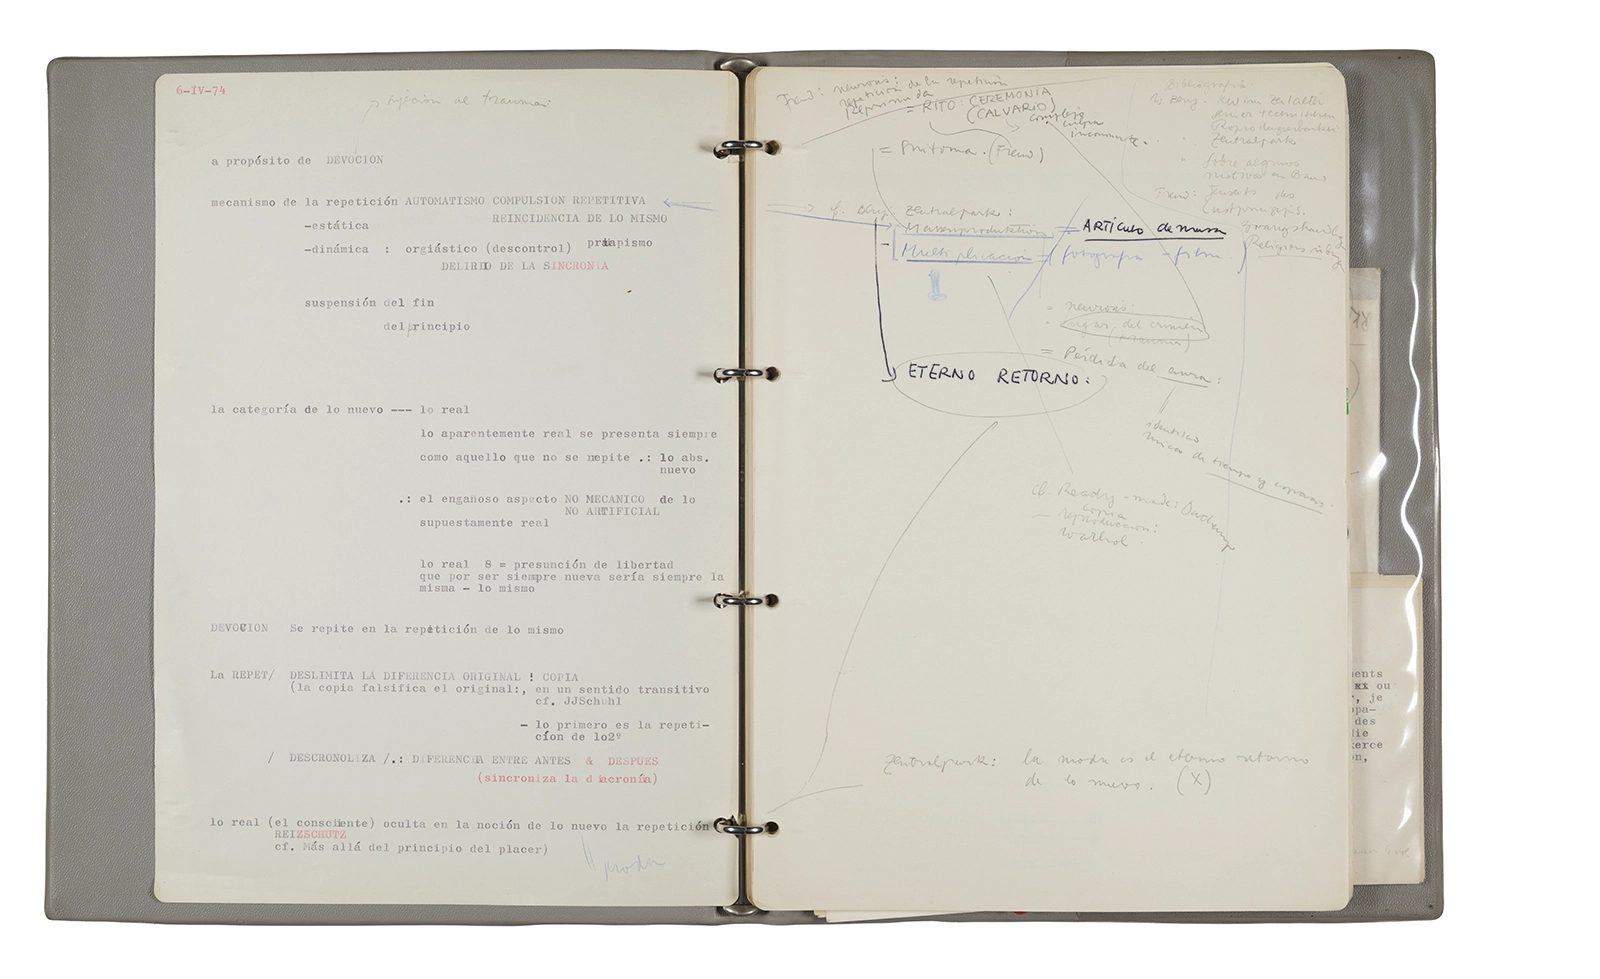 6-IV-74
a propósito de DEVOCION
mecanismo de la repetición AUTOMATISMO COMPULSION REPETITIVA
REINCIDENCIA DE LO MISMO
-estática
-dinámica : orgiástico (descontrol) priapismo
DELIRIO DE LA SINCRONIA
suspensión del fin
del principio
la categoría de lo nuevo --- lo real
lo aparentemente real se presenta siempre
como aquello que no se repite .: lo abs.
nuevo
.: el engañoso aspecto NO MECANICO de lo
NO ARTIFICIAL
supuestamente real
lo real 8 = presunción de libertad
que por ser siempre nueva sería siempre la
misma - lo mismo
DEVOCION Se repite en la repetición de lo mismo
La REPET/ DESLIMITA LA DIFERENCIA ORIGINAL ! COPIA
(la copia falsifica el original:, en un sentido transitivo
cf. JJSchuhl
- lo primero es la repeti-
ción de lo2º
/ DESCRONOLIZA /.: DIFERENCIA ENTRE ANTES & DESPUES
(sincroniza la diacronía)
lo real (el consciente) oculta en la noción de lo nuevo la repetición
REIZSCHUTZ
cf. Más allá del principio del placer)
Freud: neurosis: de la repetición
repetición
reprimida = RITO CEREMONIA
(CALVARIO)
complejo
culpa
= Síntoma. (Freud)
Bibliografía
W. Benj.
Zentralpark
Sobre algunos
motivos en Baud
Freud: Jenseits des
Lustprinzips.
cf. Benj. Zentralpark:
- Massenproduktion = ARTÍCULO de masa
- Multiplicación = (fotografía - film.)
- neurosis
- lugar del crimen
= Pérdida del aura:
ETERNO RETORNO:
de tiempo y espacio.
cf. Ready-made: Duchamp
copia
- reproducción:
Warhol.
Zentralpark: la moda es el eterno retorno
de lo nuevo. (X)
ents
ou
, je
pa-
des
die
xerce
on,